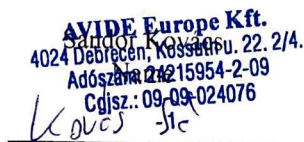 AVIDE Europe Kft.
Sándor Kovács
4024 Debrecen, Kossuth u. 22. 2/4.
Name
Adószám: 24215954-2-09
Cgjsz.: 09-09-024076